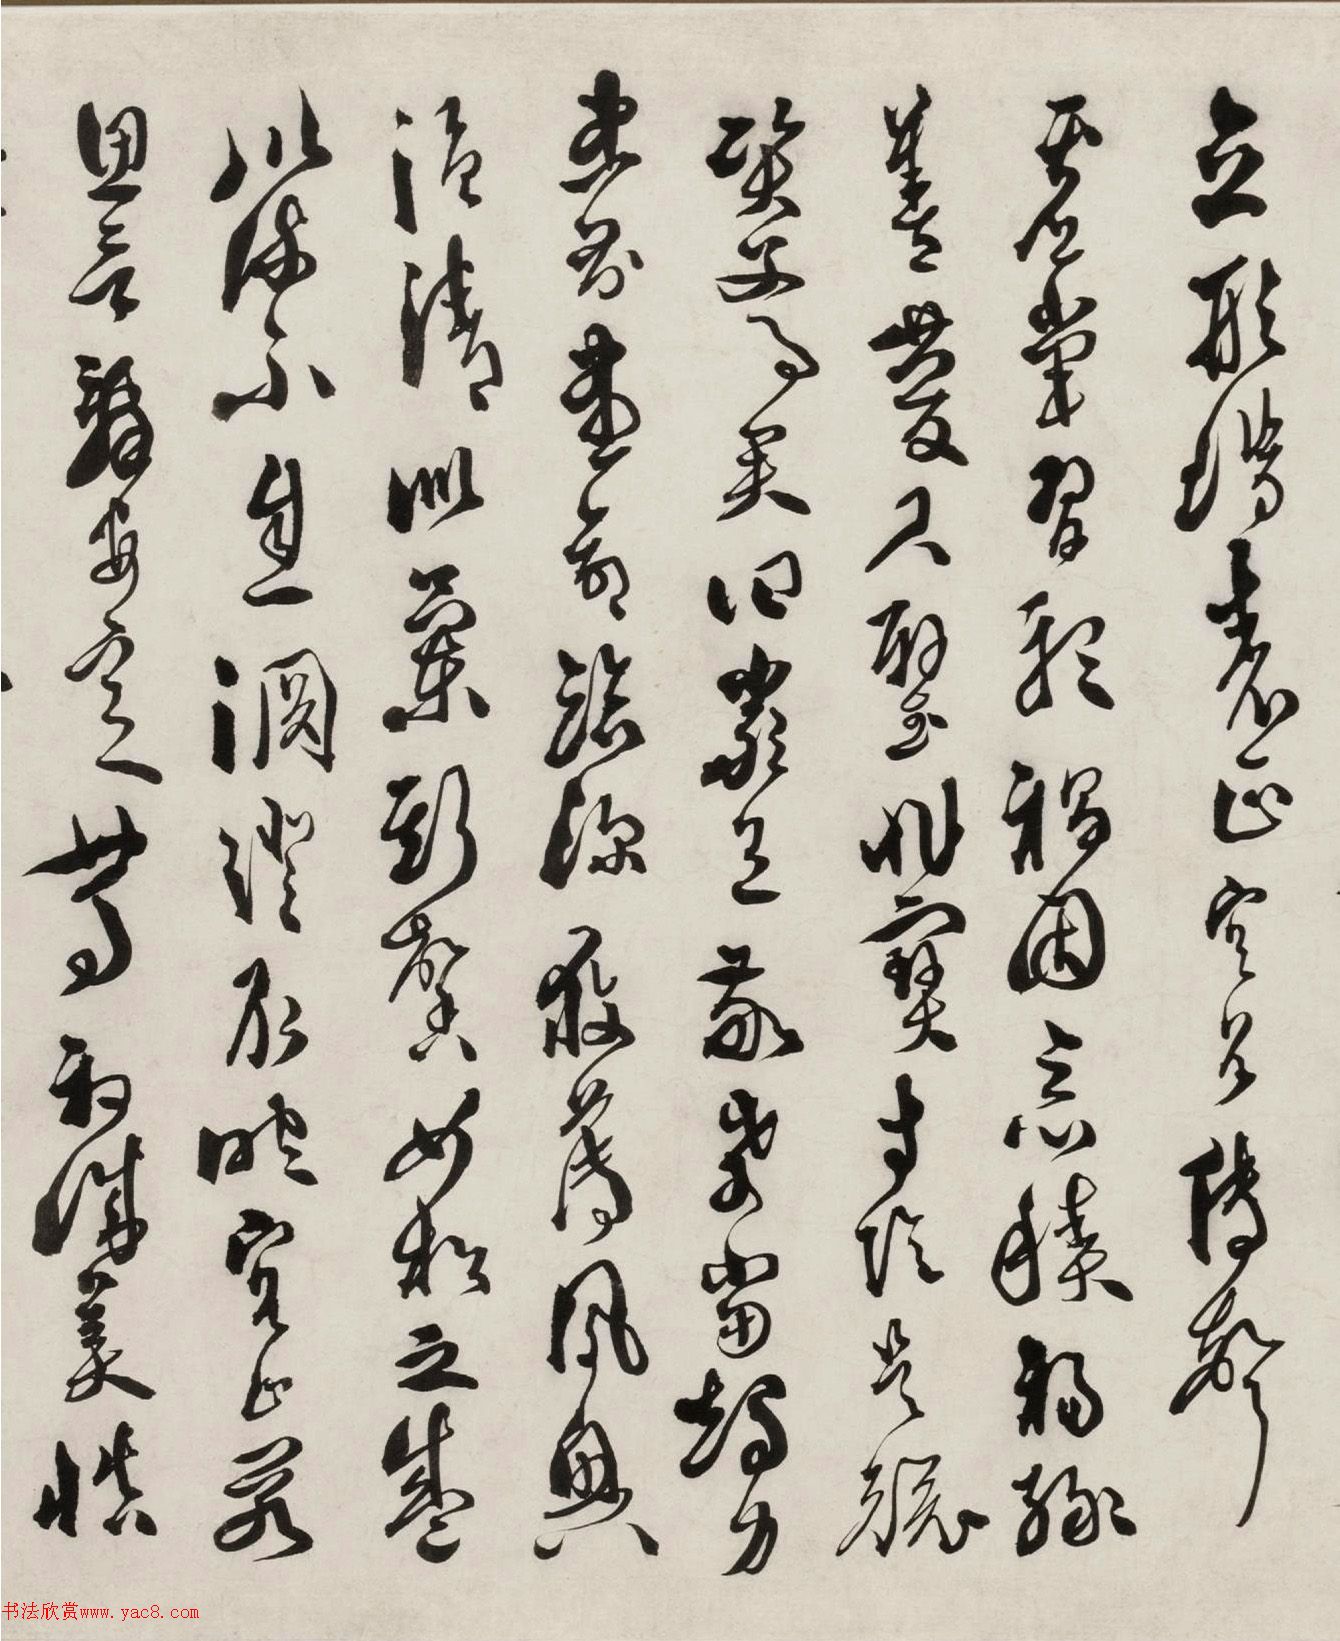 立形端表正空谷傳聲
虛堂習聽禍因惡積福緣
善慶尺璧非寶寸陰是競
資父事君曰嚴與敬孝當竭力
忠則盡命臨深履薄夙興
溫清似蘭斯馨如松之盛
川流不息淵澄取映容止若
思言辭安定篤初誠美慎
书法欣赏www.yac8.com